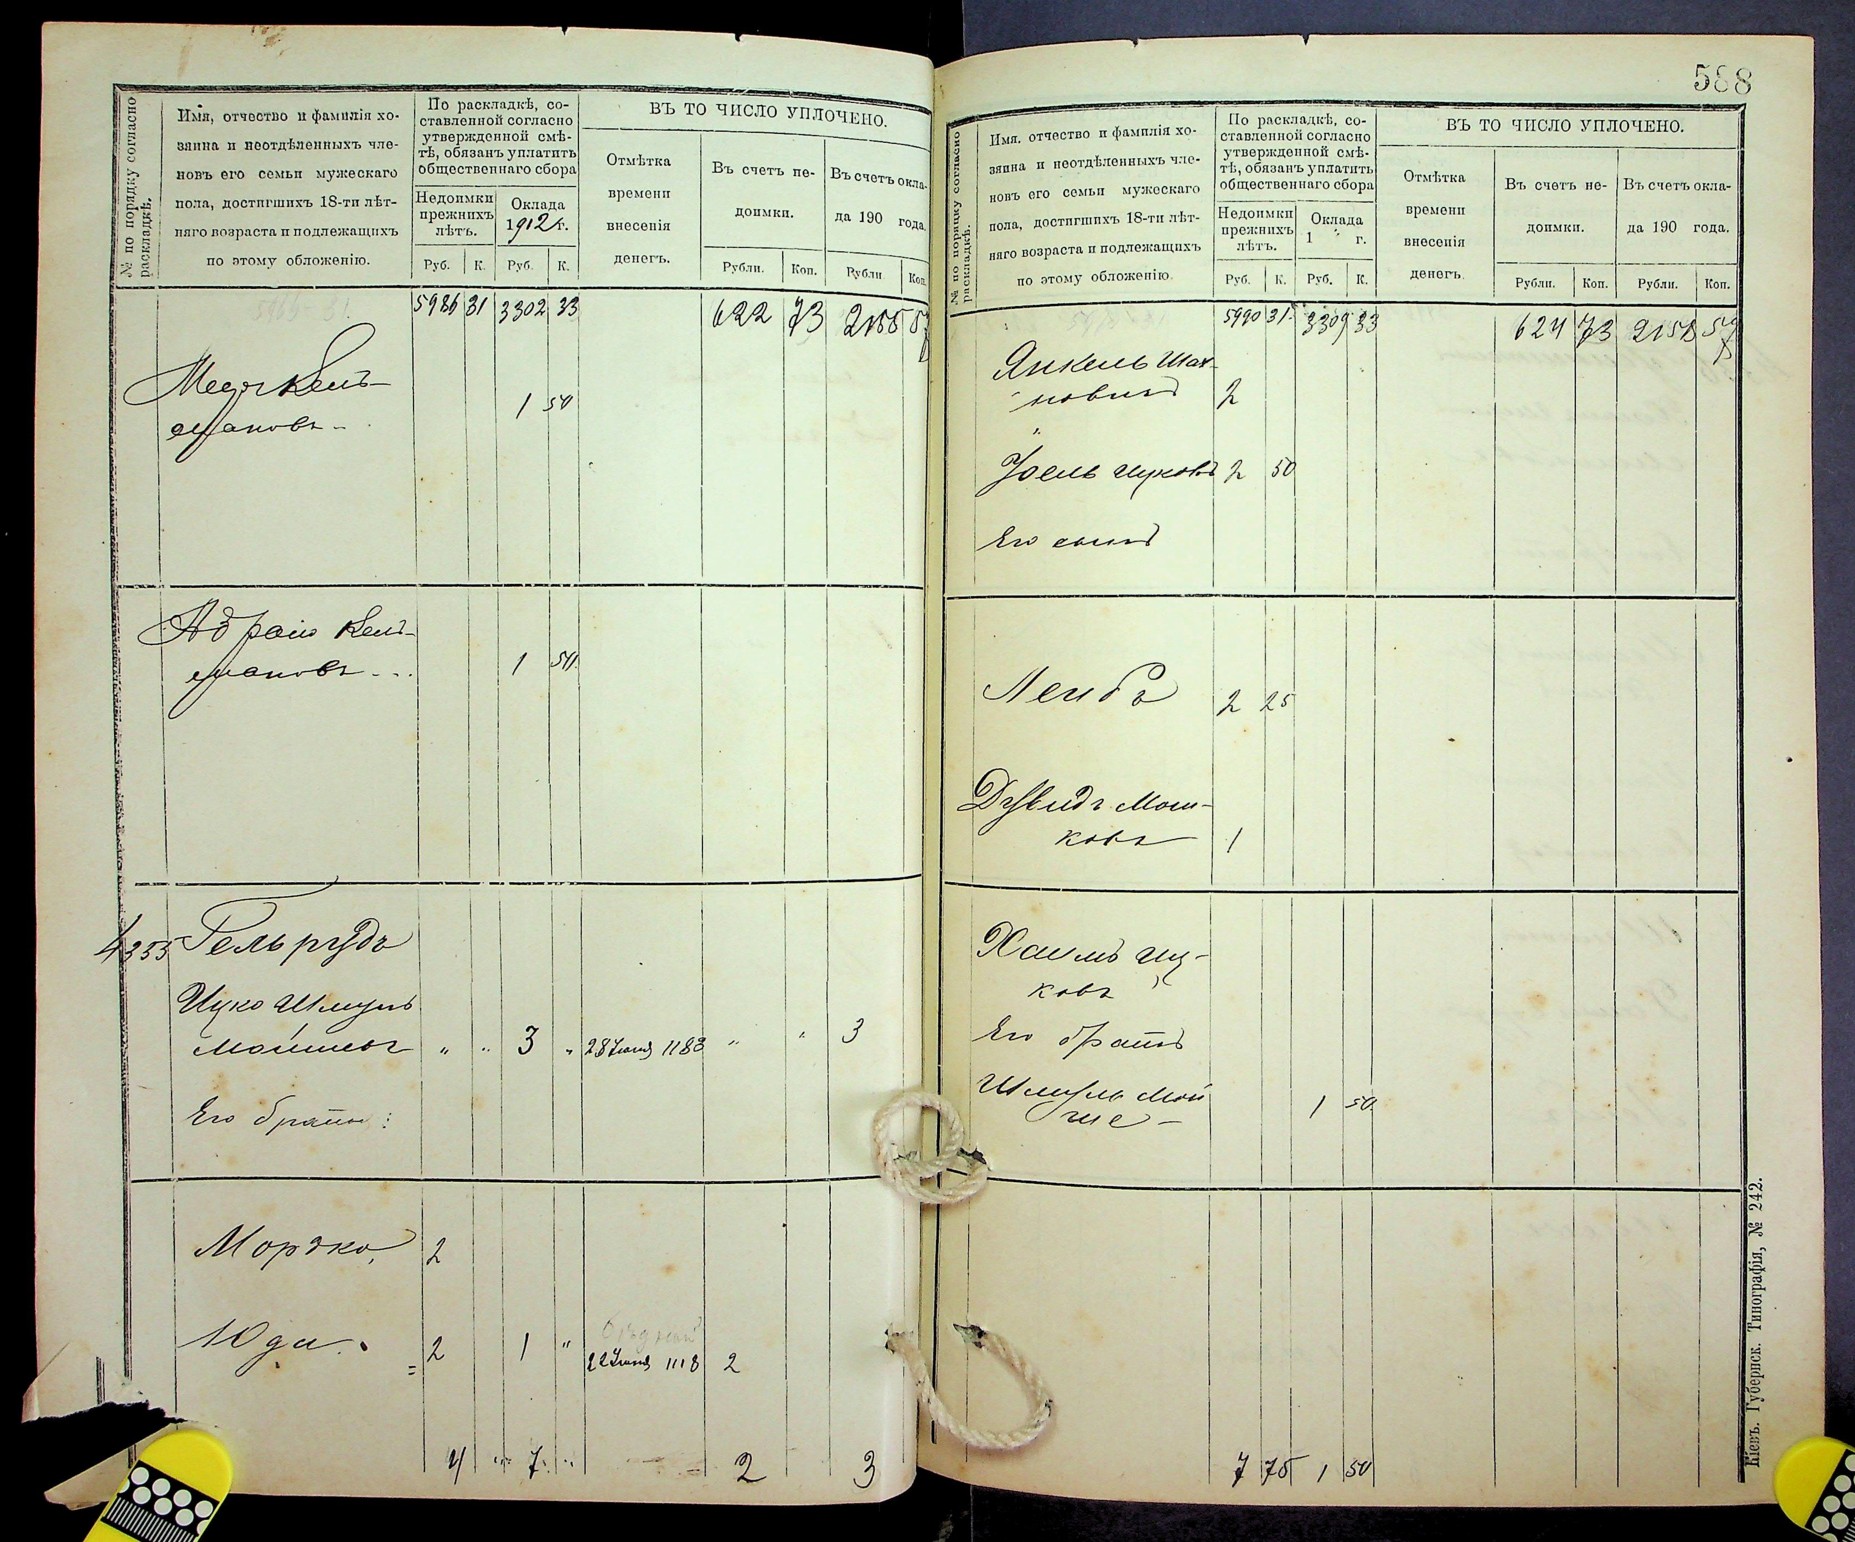 № по порядку согласно
раскладкѣ.
Имя, отчество и фамилія хо-
зяина и неотдѣленныхъ чле-
новъ его семьи мужескаго
пола, достигшихъ 18-ти лѣт-
няго возраста и подлежащихъ
по этому обложенію.
По раскладкѣ, со-
ставленной согласно
утвержденной смѣ-
тѣ, обязанъ уплатить
общественнаго сбора
Недоимки
прежнихъ
лѣтъ.
Оклада
1912 г.
Руб. К. Руб. К.
ВЪ ТО ЧИСЛО УПЛОЧЕНО.
Отмѣтка
времени
внесенія
денегъ.
Въ счетъ не-
доимки.
Рубли. Коп.
Въ счетъ окла-
да 190 года.
Рубли Коп.
5986 31 3302 33 622 73 2155 57
Кель-
мановъ 1 50
Абрамъ Кель-
мановъ 1 50
4355 Гельрудъ
Ицко Шмуль
Мошковъ " " 3 " 28 Іюня 1183 " " 3
Его братья:
Мордко, 2
Юда. 2 1 " 22 Іюня 1118 2
4 " 7 " 2 3
588
№ по порядку согласно
раскладкѣ.
Имя, отчество и фамилія хо-
зяина и неотдѣленныхъ чле-
новъ его семьи мужескаго
пола, достигшихъ 18-ти лѣт-
няго возраста и подлежащихъ
по этому обложенію.
По раскладкѣ, со-
ставленной согласно
утвержденной смѣ-
тѣ, обязанъ уплатить
общественнаго сбора
Недоимки
прежнихъ
лѣтъ.
Оклада
1 г.
Руб. К. Руб. К.
ВЪ ТО ЧИСЛО УПЛОЧЕНО.
Отмѣтка
времени
внесенія
денегъ.
Въ счетъ не-
доимки.
Рубли. Коп.
Въ счетъ окла-
да 190 года.
Рубли. Коп.
5990 31 3309 33 624 73 2158 57
Янкель Шах-
новичъ 2
Іоель Ицковъ 2 50
Его сынъ
Лейбъ 2 25
Дувидъ Мош-
ковъ 1
Хаимъ Иц-
ковъ
Его братъ
Шмуль Мой
ше 1 50
7 75 1 50
Кіевъ. Губернск. Типографія, № 242.